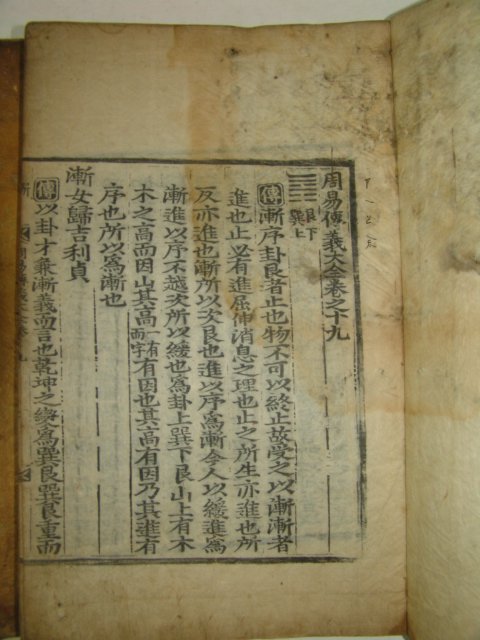 周易傳義大全卷之十九
艮下
巽上
傳漸序卦艮者止也物不可以終止故受之以漸漸者
進也止必有進屈伸消息之理也止之所生亦進也所
反亦進也漸所以次艮也進以序爲漸今人以緩進爲
漸進以序不越次所以緩也爲卦上巽下艮山上有木
木之高而因山其高而字有有因也其高有因乃其進有
序也所以爲漸也
漸女歸吉利貞
傳以卦才兼漸義而言也乾坤之變爲巽艮巽艮重而